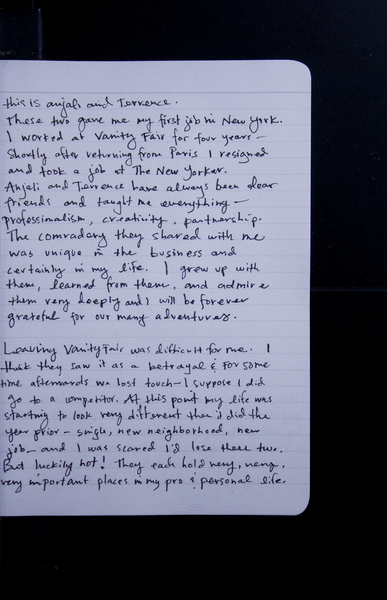 this is anjali and Torrence.
These two gave me my first job in New York.
I worked at Vanity Fair for four years –
Shortly after returning from Paris I resigned
and took a job at The New Yorker.
Anjali and Torrence have always been dear
friends and taught me everything –
professionalism, creativity, partnership.
The comradery they shared with me
was unique in the business and
certainly in my life. I grew up with
them, learned from them, and admire
them very deeply and I will be forever
grateful for our many adventures.

Leaving Vanity Fair was difficult for me. I
think they saw it as a betrayal & for some
time afterwards we lost touch – I suppose I did
go to a competitor. At this point my life was
starting to look very different than it did the
year prior – single, new neighborhood, new
job – and I was scared I'd lose these two.
But luckily not! They each hold very, very,
very important places in my pro & personal life.